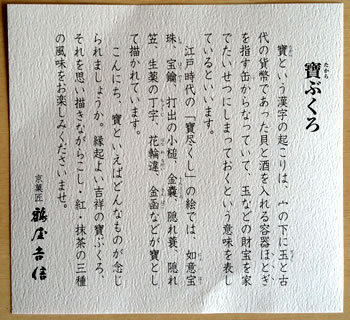 寶ぶくろ
たから
寶という漢字の起こりは、宀の下に玉と古
代の貨幣であった貝と酒を入れる容器ほとぎ
を指す缶からなっていて、玉などの財宝を家
でたいせつにしまっておくという意味を表し
ているといいます。
江戸時代の「寶尽くし」の絵では、如意宝
珠、宝鑰、打出の小槌、金嚢、隠れ蓑、隠れ
笠、生薬の丁字、花輪違、金函などが寶とし
て描かれています。
こんにち、寶といえばどんなものが念じ
られましょうか。縁起よい吉祥の寶ぶくろ、
それを思い描きながらこし・紅・抹茶の三種
の風味をお楽しみくださいませ。
京菓匠 鶴屋吉信